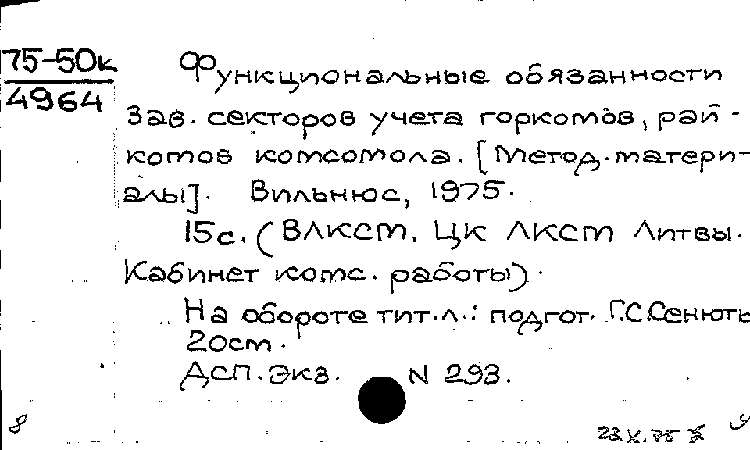 75-50к
4964
Функциональные обязанности
Зав. секторов учета горкомов, рай-
комов комсомола. [Метод. матери-
алы]. Вильнюс, 1975.
15с. (ВЛКСМ. ЦК ЛКСМ Литвы.
Кабинет комс. работы).
На обороте тит. л.: подгот. Г.С.Сенють
20см.
ДСП. Экз. N 293.
8